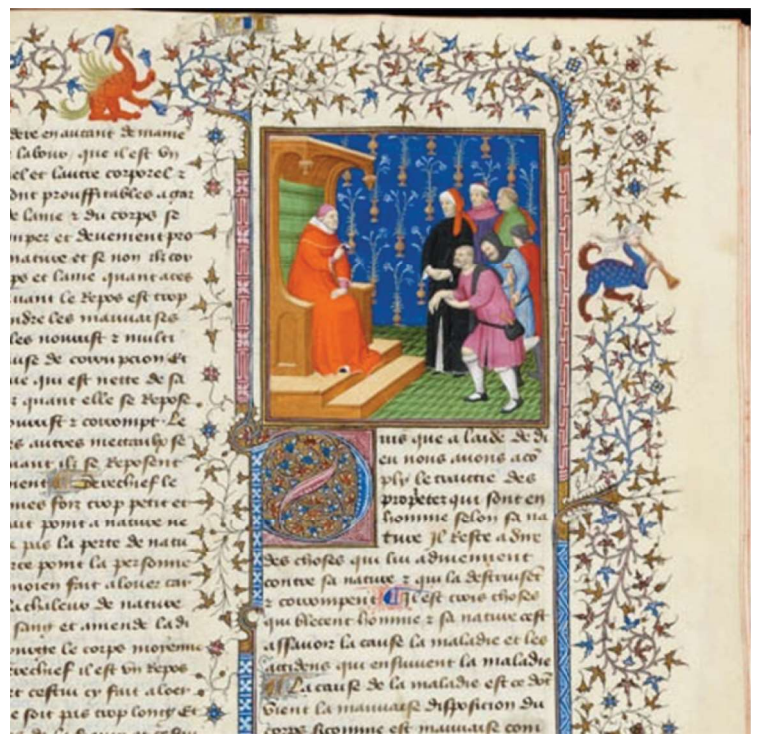 dere en autant de manie
labour, que il est vn
el et lautre corporel ⁊
ont prouffitables a gar
e lame ⁊ du corps se
mper et deviennent pro
nature et se non ilz cor
ps et lame quant aces
uant le Repos est trop
ndre les mauvaises
les nourist ⁊ multi
use de corrupcion Et
ue qui est nette de sa
quant elle se Repose
ourrist ⁊ corrompt. Le
s autres mettaulx se
uant ilz se Reposent
ment Derechief le
mes sont trop petit et
ait point a nature ne
pas la perte de natu
rce point la personne
moien fait a louer car
a chaleur de nature
sang et amende la di
le corps moyenne
erechief il est vn Repos
t cestui cy fait a loer
e soit pas trop long Et
Puis que a laide de di
eu nous avons aco
ply le traittie des
propetez qui sont en
homme selon sa na
ture Il Reste a dire
des choses qui lui adviennent
contre sa nature ⁊ qui la destruisēt
⁊ corrompent Il est trois choses
qui blecent homme ⁊ sa nature cest
assavoir la cause la maladie et les
accidens qui ensuivent la maladie
La cause de la maladie est ce dōt
vient la mauvaise disposition du
corps sicomme est mauvaise com